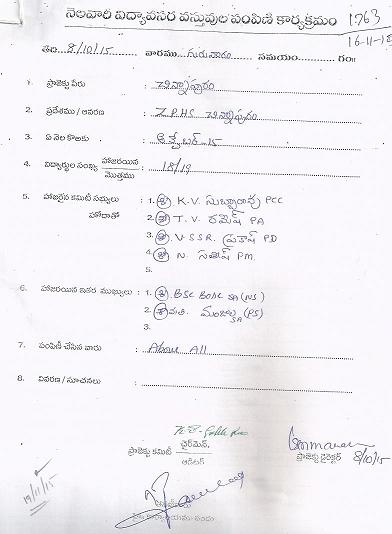 నెలవారీ విద్యావసర వస్తువుల పంపిణి కార్యక్రమం 1763
16-11-15
తేది 8/10/15 వారము గురువారం సమయం గం॥
1. ప్రాజెక్టు పేరు చిన్నాపురం
2. ప్రదేశము / ఆవరణ ZPHS చిన్నాపురం
3. ఏ నెల కొఱకు అక్టోబర్-15
4. విద్యార్ధుల సంఖ్య హాజరయిన / మొత్తము 18/19
5. హాజరైన కమిటీ సభ్యులు : 1. శ్రీ K.V. సుబ్బారావు PCC
హోదాతో 2. శ్రీ T.V. రమేష్ PA
3. శ్రీ V.S.S.R. ప్రకాష్ PD
4. శ్రీ N. సతీష్ PM.
5.
6. హాజరయిన ఇతర ముఖ్యులు : 1. శ్రీ. BSC SA (NS)
2. శ్రీమతి. మంజుల SA (PS)
3.
7. పంపిణీ చేసిన వారు : Above All
8. వివరణ / సూచనలు :
ప్రాజెక్టు కమిటీ ఛైర్మెన్,
ఆడిటర్
ప్రాజెక్టు డైరెక్టర్ 8/10/15
19/11/15